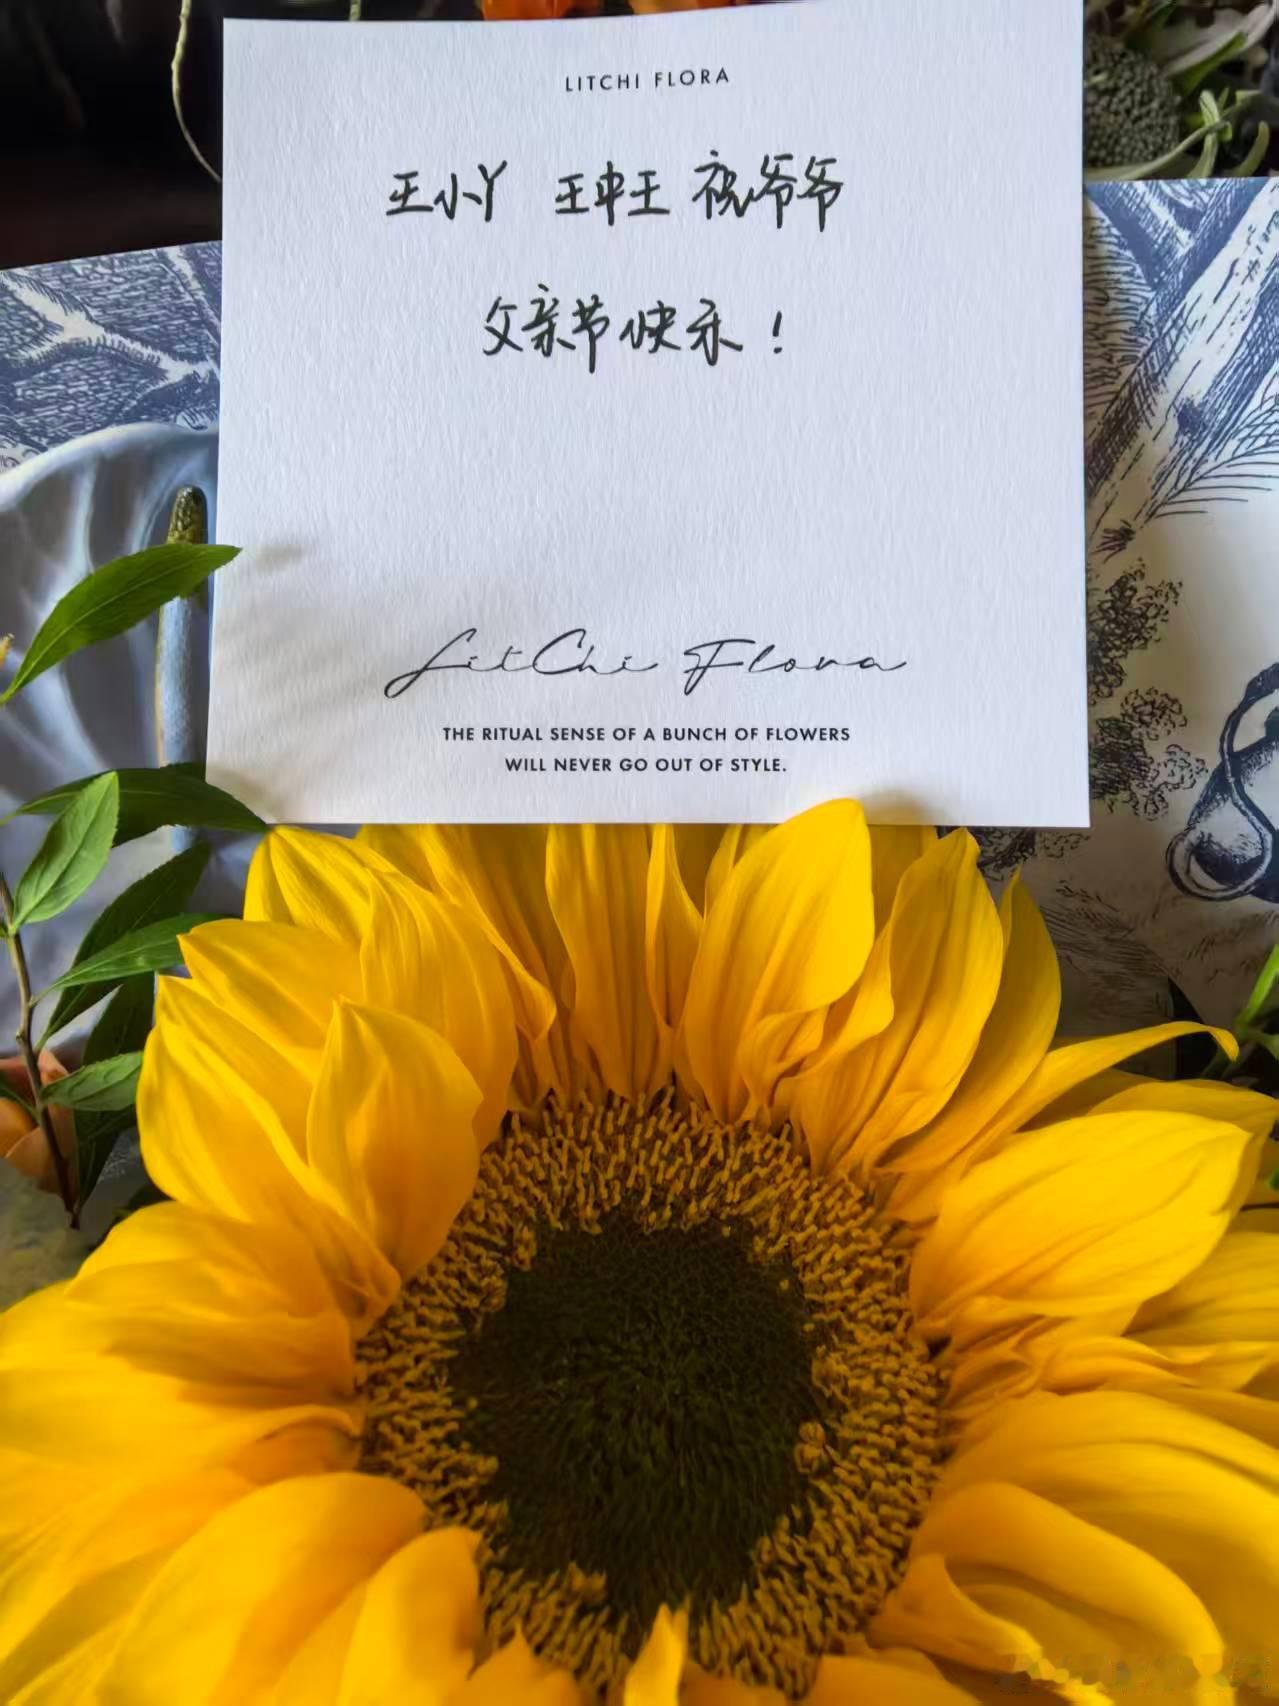 LITCHI FLORA
王小丫 王中王 祝爷爷
父亲节快乐！
LitChi Flora
THE RITUAL SENSE OF A BUNCH OF FLOWERS
WILL NEVER GO OUT OF STYLE.